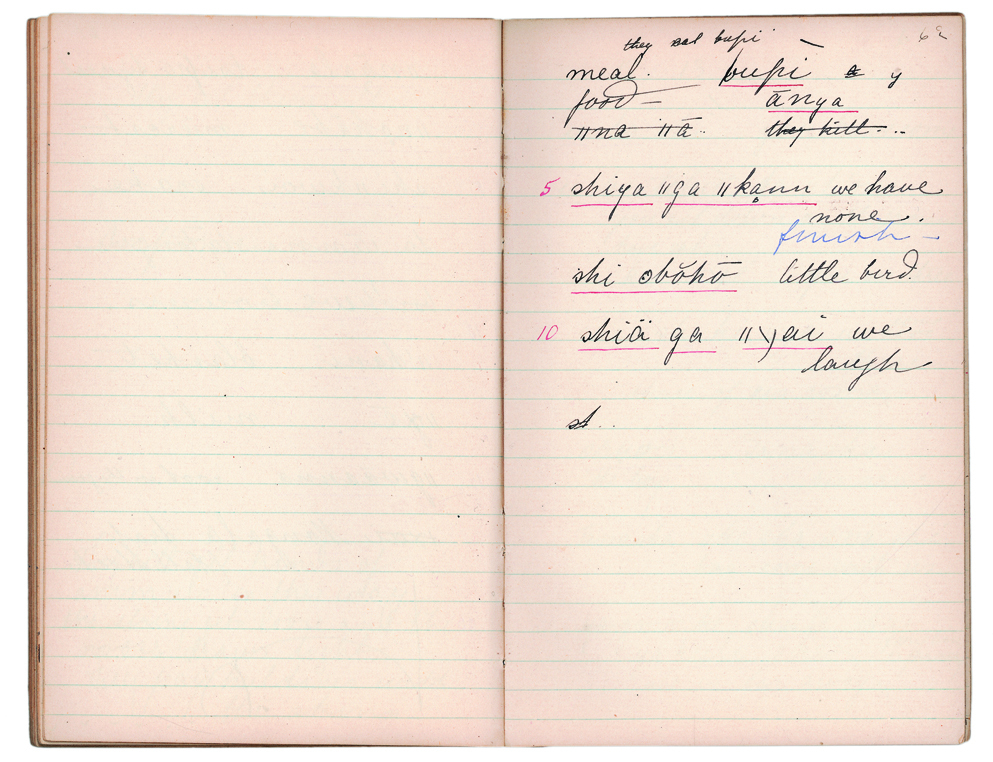 they bupi
meal. bupi y
food — ānya
ǁna ǁā.. they kill...
5 shiya ǁga ǁkạnn we have
none.
finish —
shi ʘbŏhō little bird.
10 shiä ga ǁ\yai we
laugh
st..